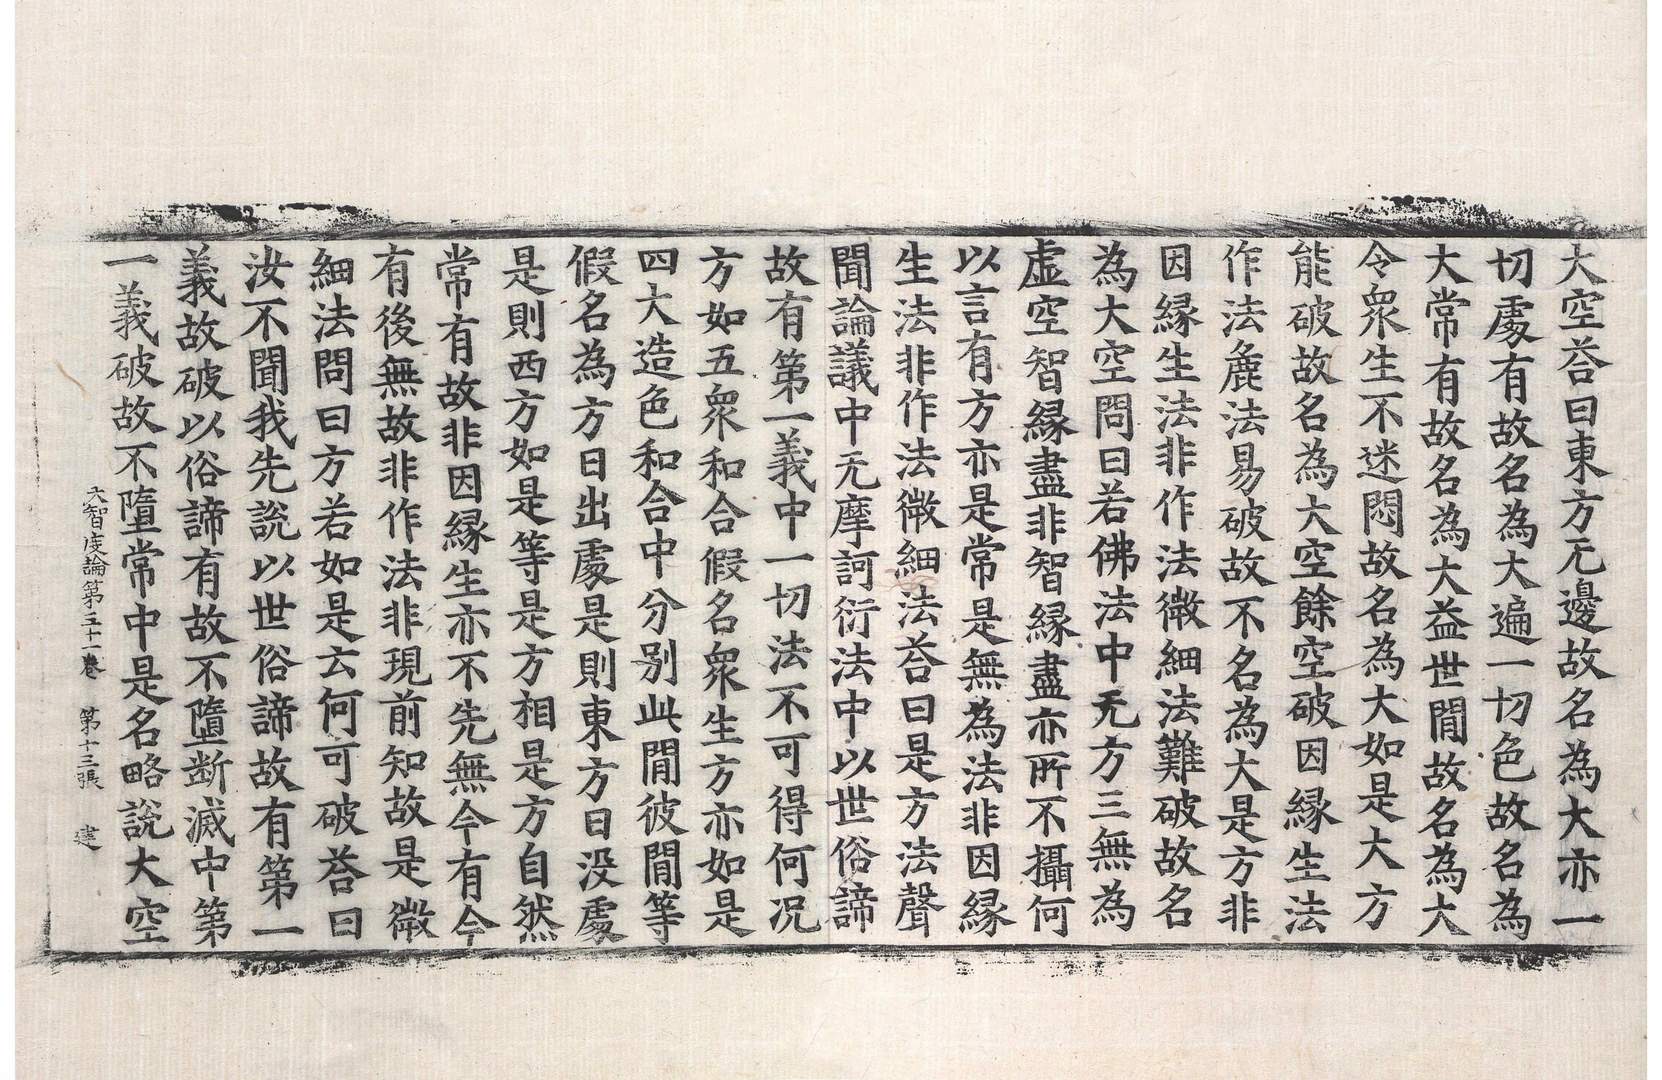 大空荅曰東方无邊故名為大亦一
切處有故名為大遍一切色故名為
大常有故名為大益世閒故名為大
令衆生不迷悶故名為大如是大方
能破故名為大空餘空破因緣生法
作法麁法易破故不名為大是方非
因緣生法非作法微細法難破故名
為大空問曰若佛法中无方三無為
虛空智緣盡非智緣盡亦所不攝何
以言有方亦是常是無為法非因緣
生法非作法微細法荅曰是方法聲
聞論議中无摩訶衍法中以世俗諦
故有第一義中一切法不可得何况
方如五衆和合假名衆生方亦如是
四大造色和合中分別此閒彼閒等
假名為方日出處是則東方日没處
是則西方如是等是方相是方自然
常有故非因緣生亦不先無今有今
有後無故非作法非現前知故是微
細法問曰方若如是云何可破荅曰
汝不聞我先說以世俗諦故有第一
義故破以俗諦有故不墮断滅中第
一義破故不墮常中是名略說大空
大智度論第三十一卷　第十三張　建